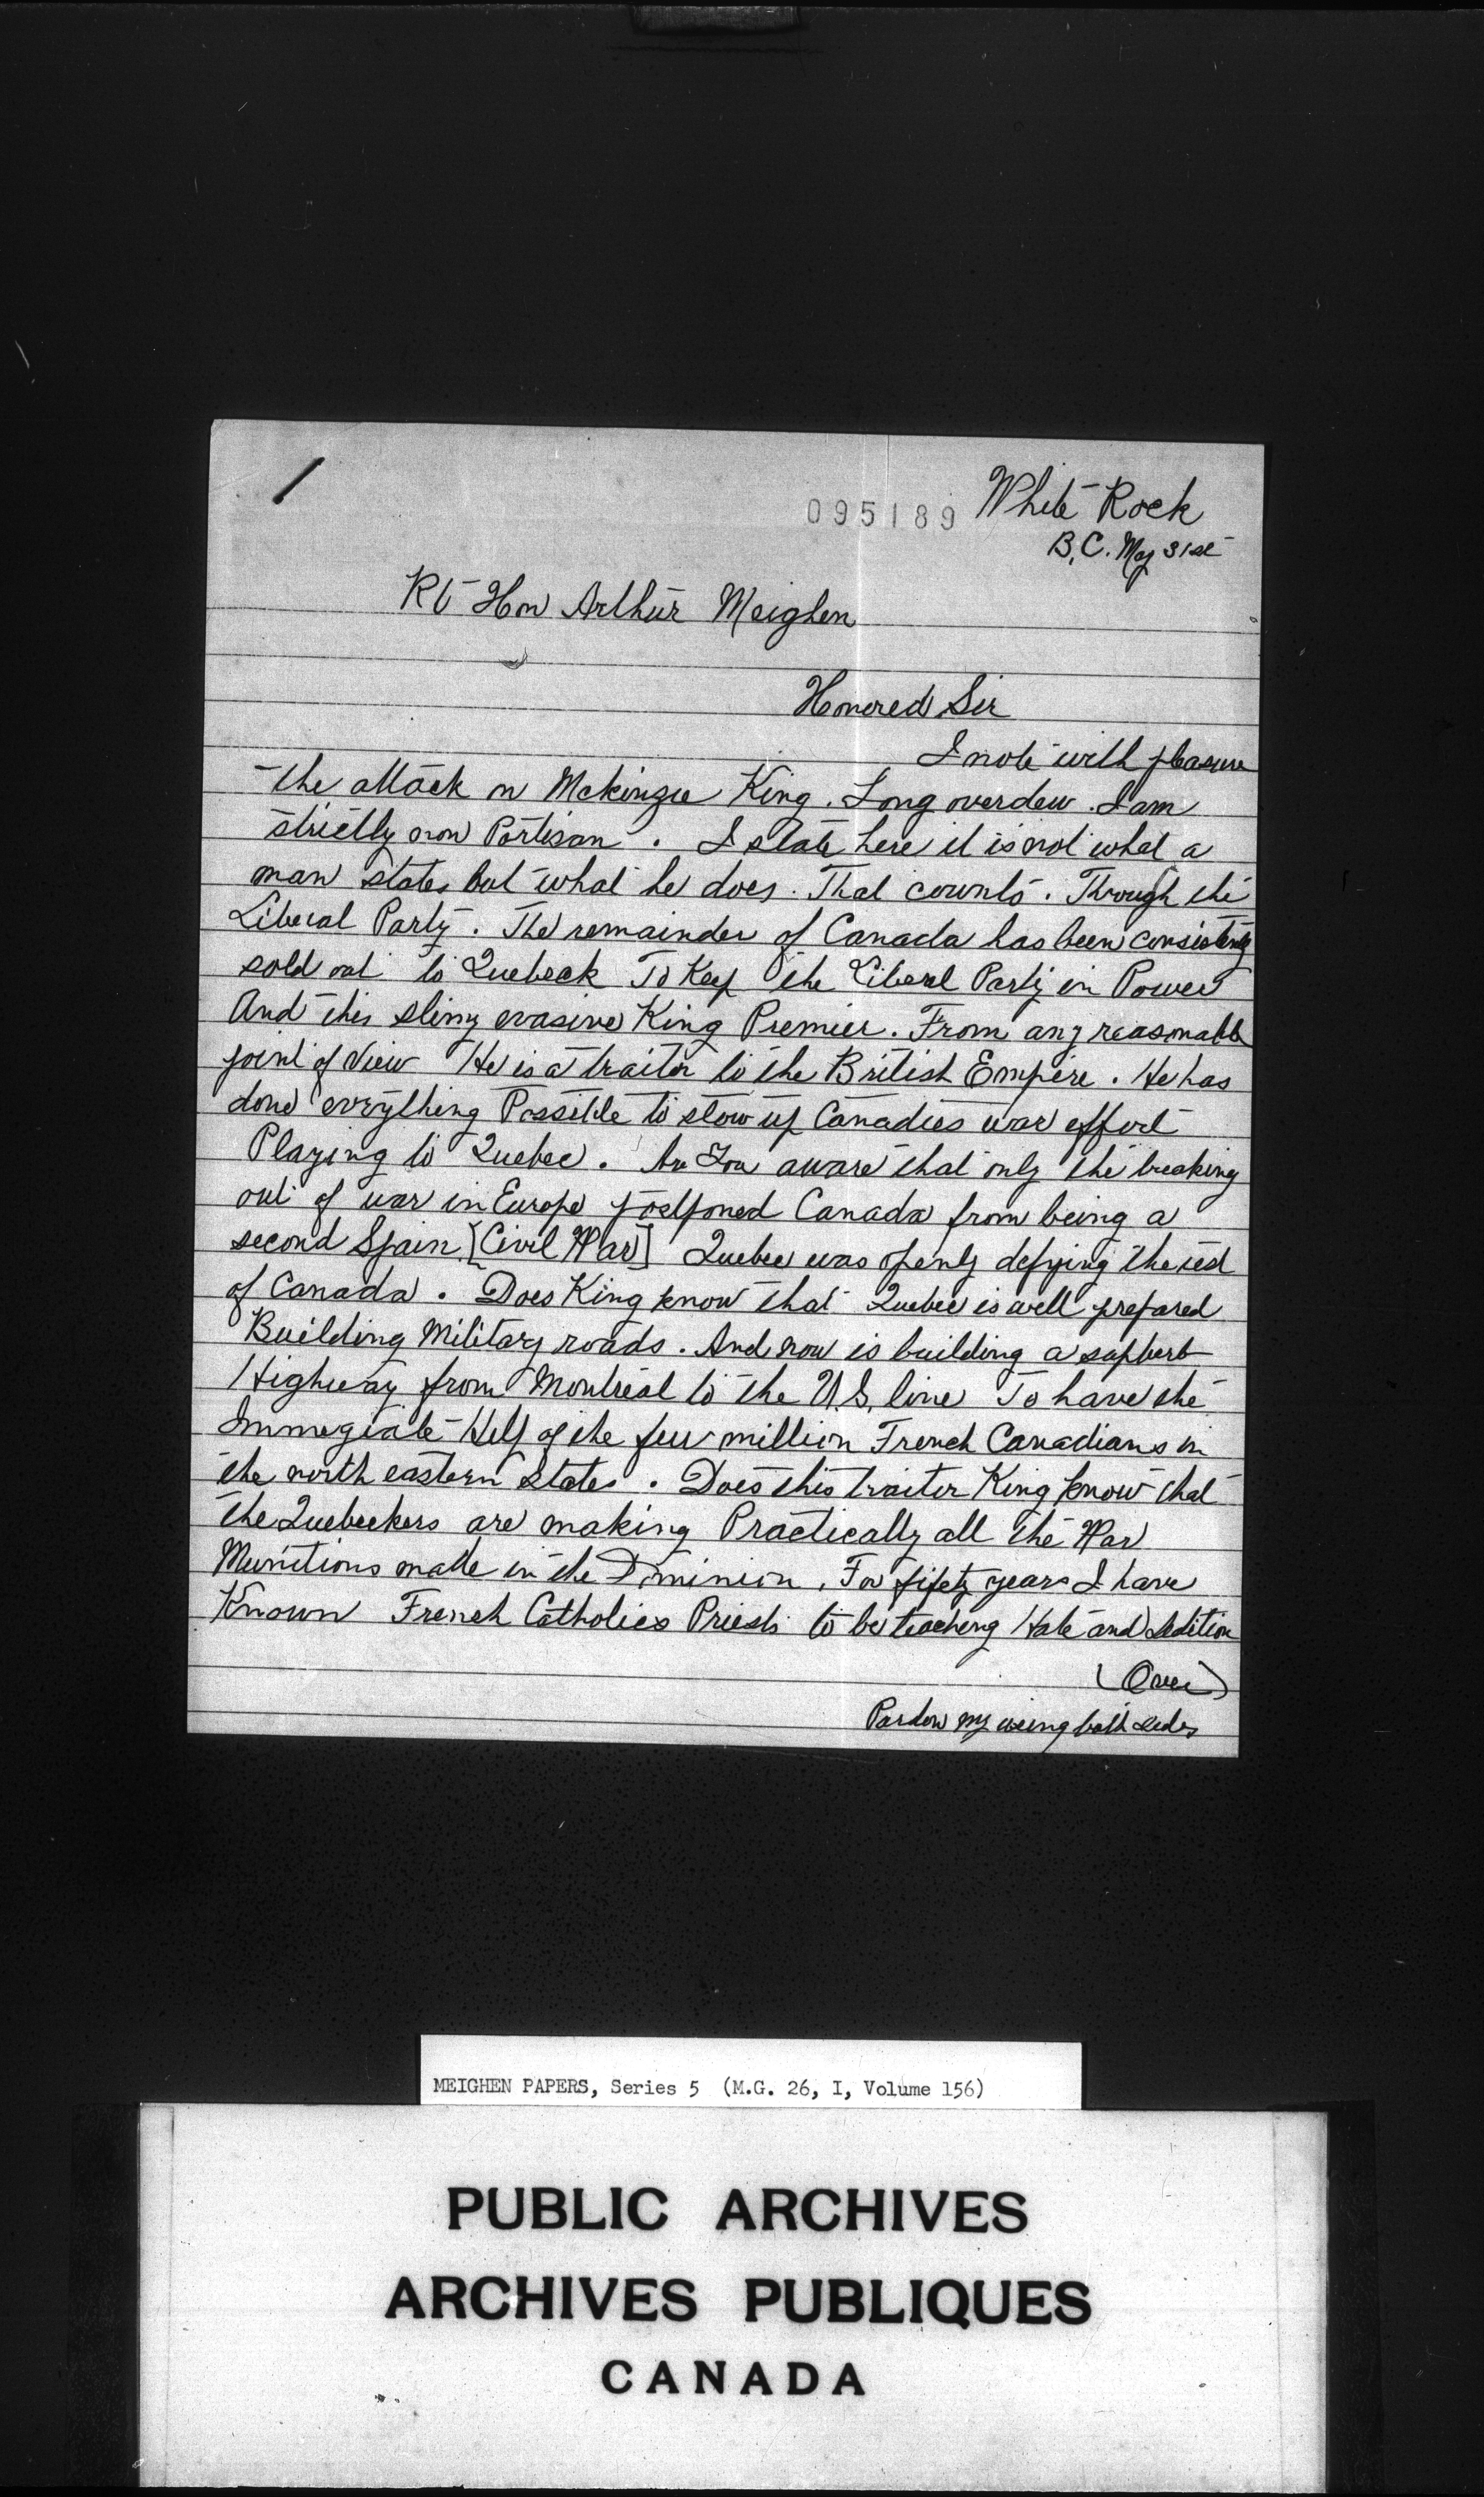 1
095189 White Rock
B.C. May 31st
Rt Hon Arthur Meighen
Honored Sir
I note with pleasure
the attack on Mckinzie King. Long overdew. I am
strictly non Partisan. I state here it is not what a
man states but what he does. That counts. Through the
Liberal Party. The remainder of Canada has been consistently
sold out to Quebeck To Keep the Liberal Party in Power
And this slimy evasive King Premier. From any reasonable
point of view He is a traitor to the British Empire. He has
done everything Possible to slow up Canadies war effort
Playing to Quebec. Are You aware that only the breaking
out of war in Europe postponed Canada from being a
second Spain [Civil War] Quebec was openly defying the rest
of Canada. Does King know that Quebec is well prepared
Building Military roads. And now is building a supberb
Highway from Montreal to the U.S. line To have the
Immegiate Help of the few million French Canadians in
the north eastern states. Does this traitor King know that
the Quebeckers are making Practically all the War
Munitions made in the Dominion. For fifety years I have
Known French Catholics Priests to be teaching Hate and Sedition
(Over)
Pardon my using both sides
MEIGHEN PAPERS, Series 5 (M.G. 26, I, Volume 156)
PUBLIC ARCHIVES
ARCHIVES PUBLIQUES
CANADA